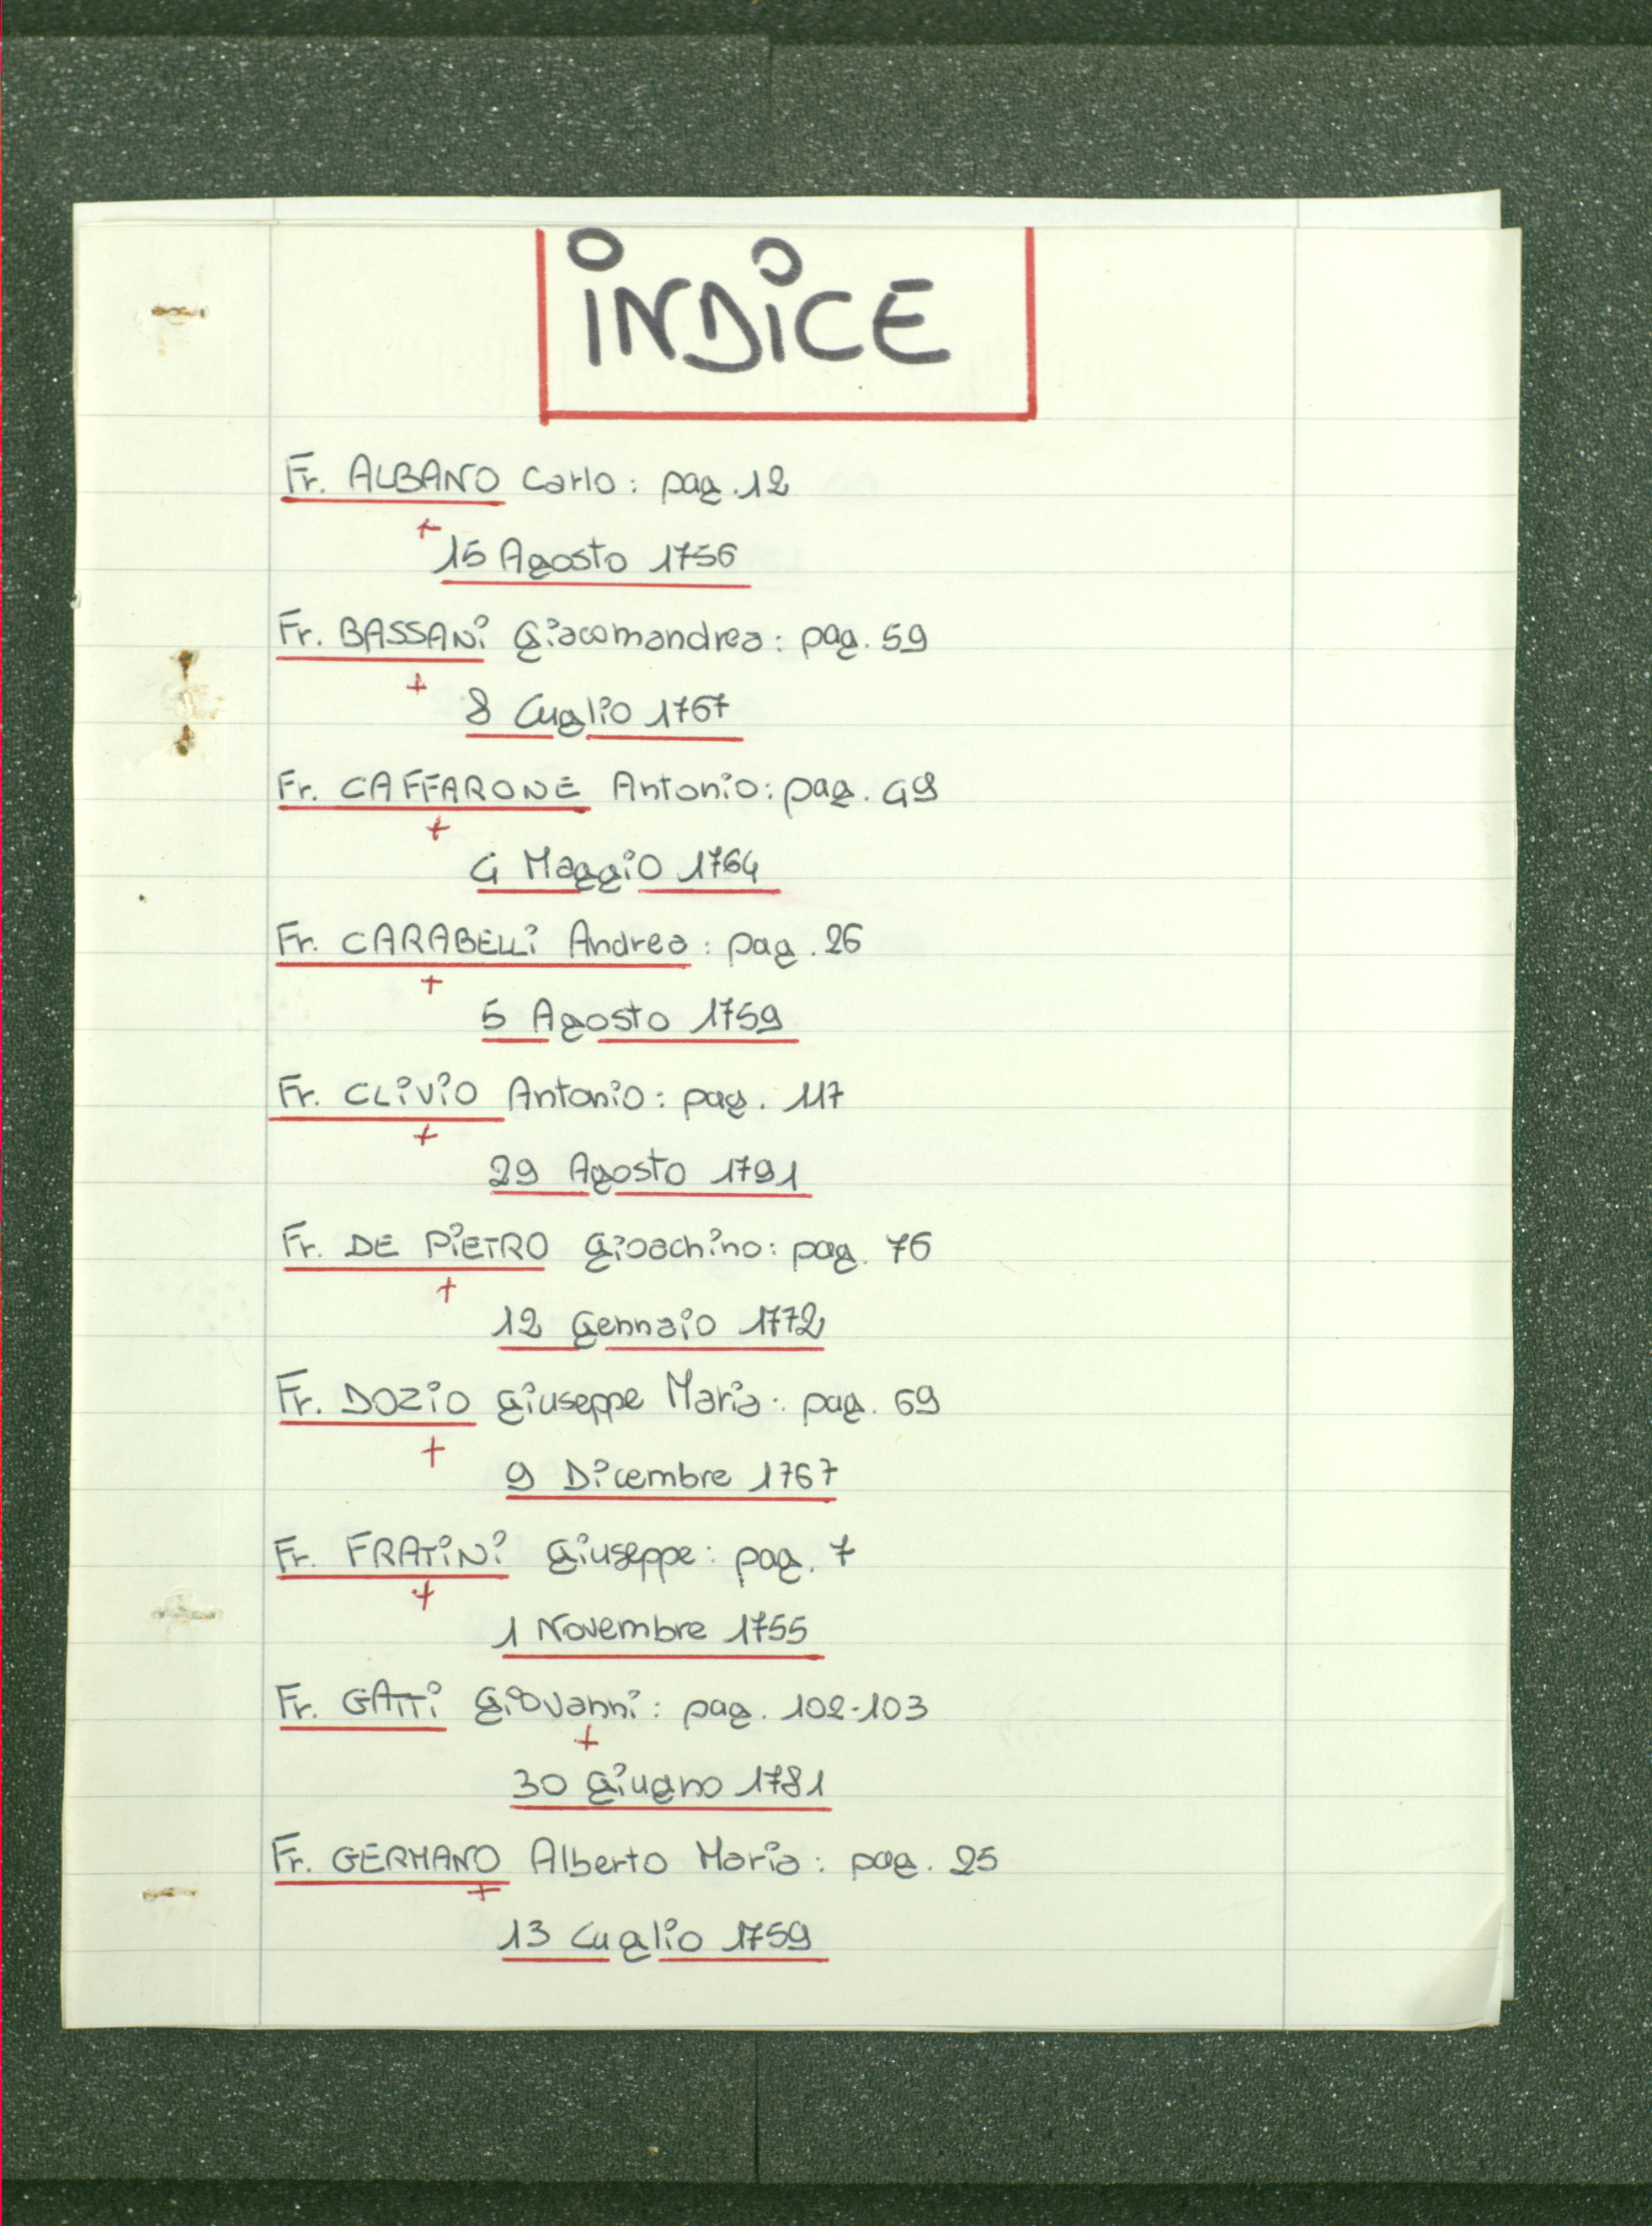 INDICE
Fr. ALBANO Carlo: pag. 12
+
15 Agosto 1756
Fr. BASSANi Giacomandrea: pag. 59
+
8 Luglio 1767
Fr. CAFFARONE Antonio: pag. 49
+
4 Maggio 1764
Fr. CARABELLi Andrea: pag. 26
+
5 Agosto 1759
Fr. CLiViO Antonio: pag. 117
+
29 Agosto 1791
Fr. DE PiETRO Gioachino: pag. 76
+
12 Gennaio 1772
Fr. DOZiO Giuseppe Maria: pag. 69
+
9 Dicembre 1767
Fr. FRATiNi Giuseppe: pag. 7
+
1 Novembre 1755
Fr. GATTi Giovanni: pag. 102-103
+
30 Giugno 1781
Fr. GERMANO Alberto Maria: pag. 25
+
13 Luglio 1759